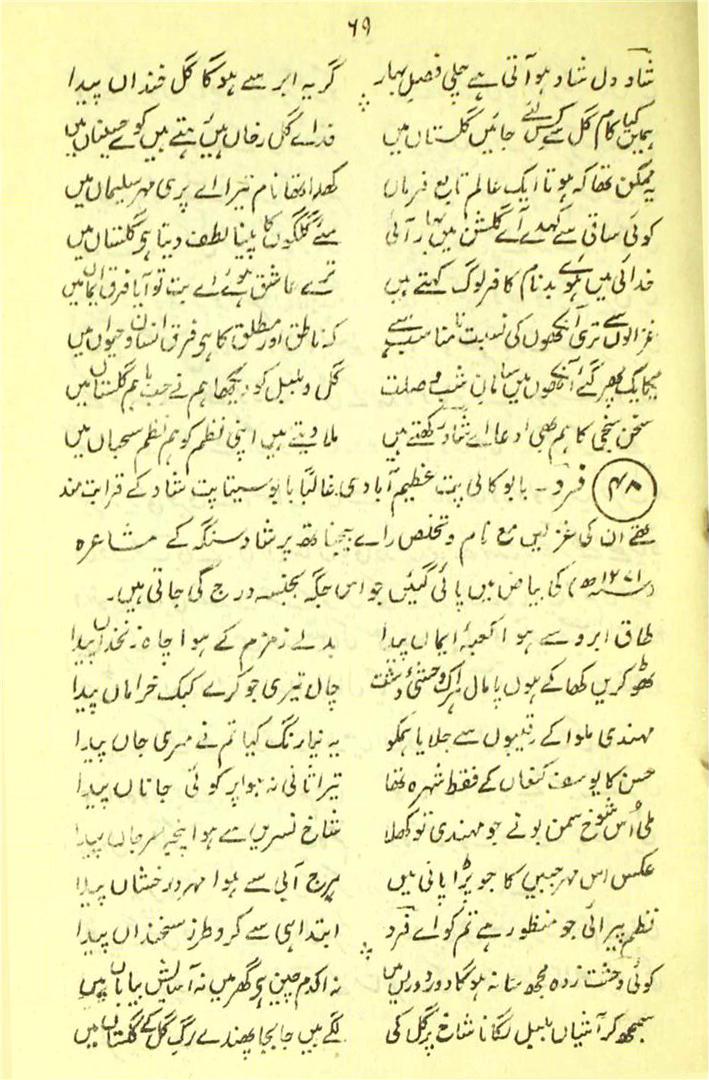 ۶۹
شاد دل شاد ہو آتی ہے چلی فصلِ بہار گریہ ابر سے ہوگا گل خنداں پیدا
ہمیں کیا کام گل سے کس لئے جائیں گلستاں میں فدائے گل رخاں ہیں رہتے ہیں کوئے حسیناں میں
یہ ممکن تھا کہ ہوتا ایک عالم تابع فرماں کھدا تھا نام تیرا اے پری مہر سلیماں میں
کوئی ساقی سے کہدے آئے گلشن میں بہار آئی مئے گلگوں کا پینا لطف دیتا ہے گلستاں میں
خدائی میں ہوئے بدنام کافر لوگ کہتے ہیں ترے عاشق ہوئے اے بت تو آیا فرق ایماں میں
غزالوں سے تری آنکھوں کی نسبت نامناسب ہے کہ ناطق اور مطلق کا ہی فرق انسان و حیواں میں
یکایک پھر گئے آنکھوں میں سامانِ شب وصلت گل و بلبل کو دیکھا ہم نے جب باہم گلستاں میں
سخن سنجی کا ہم بھی ادعا اے شاد رکھتے ہیں ملا دیتے ہیں اپنی نظم کو ہم نظم سحباں میں
(۴۸) فرد ۔ بابو کالی پت عظیم آبادی۔ غالبًا بابو سیتا پت شاد کے قرابت مند
تھے ان کی غزلیں مع نام و تخلص رائے بیجناتھ پرشاد سنگہ کے مشاعرہ
(سنہ ۱۲۷۱ھ) کی بیاض میں پائی گئیں جو اس جگہ بجنسہ درج کی جاتی ہیں۔
طاق ابرو سے ہوا کعبۂ ایماں پیدا بدلے زمزم کے ہوا چاہ زنخداں پیدا
ٹھوکریں کھا کے ہوں پامال ہر اک وحشئ دشت چال تیری جو کرے کبک خراماں پیدا
مہندی ملوا کے رقیبوں سے جلایا ہمکو یہ نیا رنگ کیا تم نے مری جاں پیدا
حسن کا یوسف کنعاں کے فقط شہرہ تھا تیرا ثانی نہ ہوا پر کوئی جاناں پیدا
ملی اُس شوخ سمن بو نے جو مہندی تو کھلا شاخ نسریں سے ہوا پنجۂ مرجاں پیدا
عکس اس مہ جبیں کا جو پڑا پانی میں برج آبی سے ہوا مہر درخشاں پیدا
نظم پیرائی جو منظور ہے تم کو اے فرد ابتدا ہی سے کرو طرز سخنداں پیدا
کوئی وحشت زدہ مجھ سا نہ ہوگا دور دوریں میں نہ اکدم چین ہے گھر میں نہ آسایش بیاباں میں
سمجھ کر آشیاں بلبل لگانا شاخ پر گل کی لگے ہیں جا بجا پھندے رگِ گل کے گلستاں میں